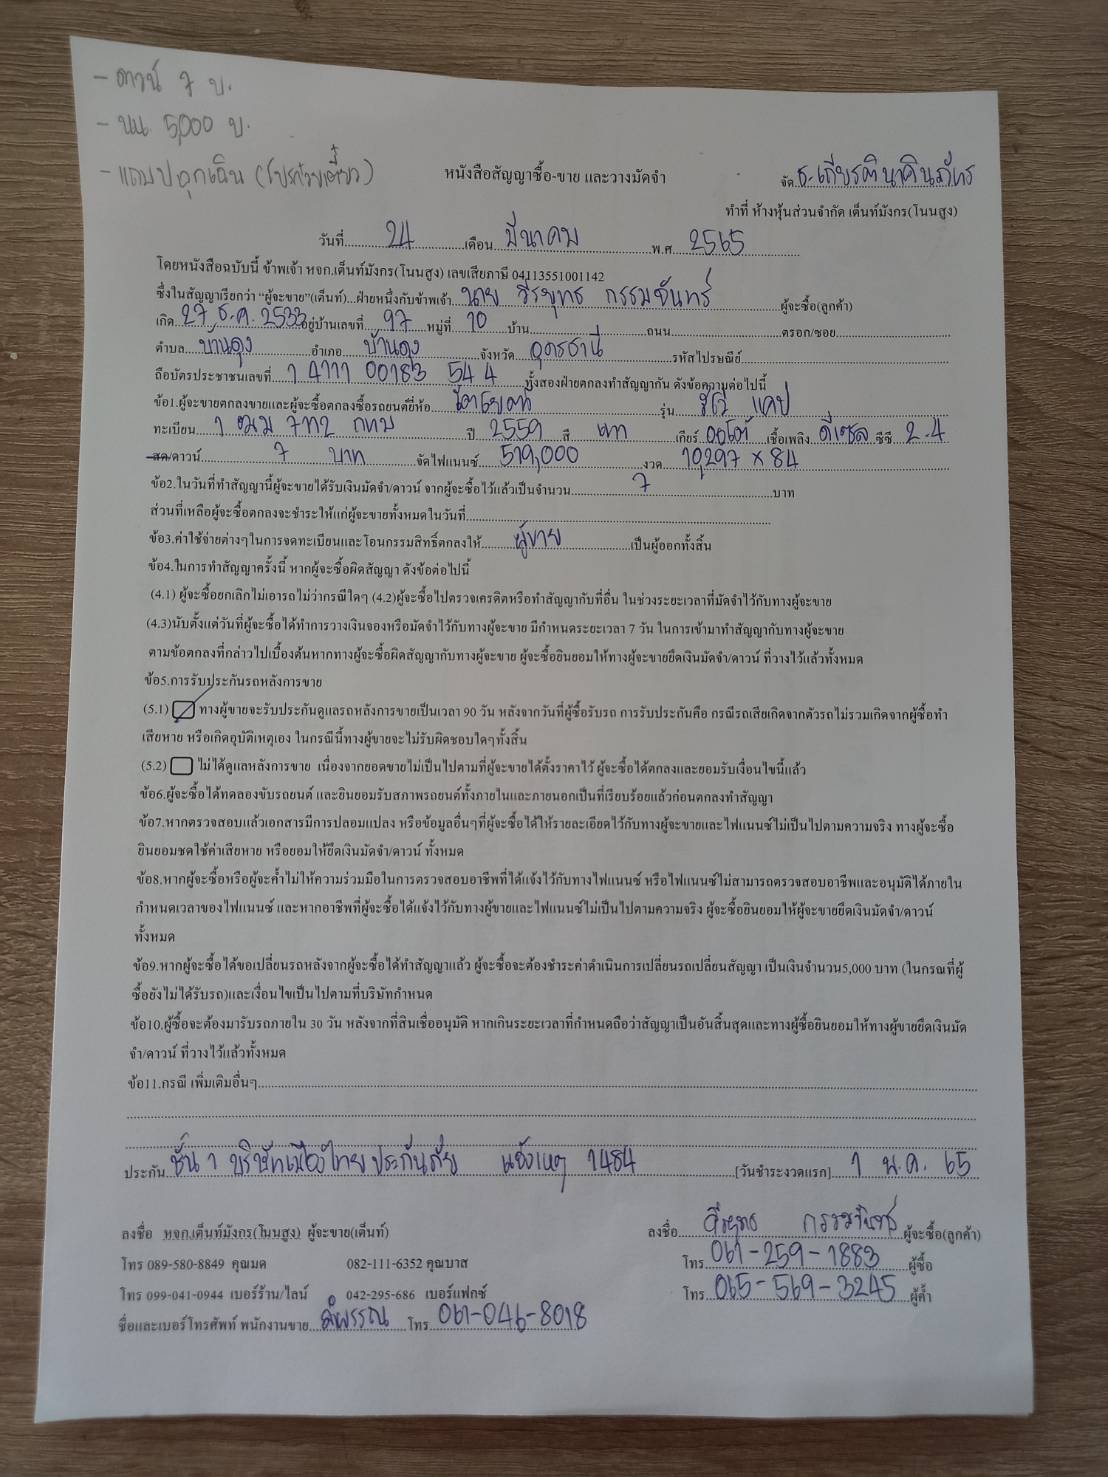 - ดาวน์ 7 บ.
- นน. 5,000 บ.
- แถมปลุกเฉิน
หนังสือสัญญาซื้อ-ขาย และวางมัดจำ
จัด ธ.เกียรตินาคินภัทร
ทำที่ ห้างหุ้นส่วนจำกัด เต็นท์มังกร(โนนสูง)
วันที่ 24 เดือน มีนาคม พ.ศ 2565
โดยหนังสือฉบับนี้ ข้าพเจ้า หจก.เต็นท์มังกร(โนนสูง) เลขเสียภาษี 04113551001142
ซึ่งในสัญญาเรียกว่า "ผู้จะขาย"(เต็นท์)...ฝ่ายหนึ่งกับข้าพเจ้า นาย วีรยุทธ กรรมจันทร์ ผู้จะซื้อ(ลูกค้า)
เกิด 27 ธ.ค. 2533 อยู่บ้านเลขที่ 97 หมู่ที่ 10 บ้าน ถนน ตรอก/ซอย
ตำบล บ้านดุง อำเภอ บ้านดุง จังหวัด อุดรธานี รหัสไปรษณีย์
ถือบัตรประชาชนเลขที่ 1 4111 00183 54 4 ทั้งสองฝ่ายตกลงทำสัญญากัน ดังข้อความต่อไปนี้
ข้อ1.ผู้จะขายตกลงขายและผู้จะซื้อตกลงซื้อรถยนต์ยี่ห้อ โตโยต้า รุ่น รีโว่ แคป
ทะเบียน 1 ฒม 7712 กทม ปี 2559 สี เทา เกียร์ ออโต้ เชื้อเพลิง ดีเซล ซีซี 2.4
สด/ดาวน์ 7 บาท จัดไฟแนนซ์ 519,000 งวด 10,297 x 84
ข้อ2.ในวันที่ทำสัญญานี้ผู้จะขายได้รับเงินมัดจำ/ดาวน์ จากผู้จะซื้อไว้แล้วเป็นจำนวน 7 บาท
ส่วนที่เหลือผู้จะซื้อตกลงจะชำระให้แก่ผู้จะขายทั้งหมดในวันที่
ข้อ3.ค่าใช้จ่ายต่างๆในการจดทะเบียนและโอนกรรมสิทธิ์ตกลงให้ ผู้ขาย เป็นผู้ออกทั้งสิ้น
ข้อ4.ในการทำสัญญาครั้งนี้ หากผู้จะซื้อผิดสัญญา ดังข้อต่อไปนี้
(4.1) ผู้จะซื้อยกเลิกไม่เอารถไม่ว่ากรณีใดๆ (4.2)ผู้จะซื้อไปตรวจเครดิตหรือทำสัญญากับที่อื่น ในช่วงระยะเวลาที่มัดจำไว้กับทางผู้จะขาย
(4.3)นับตั้งแต่วันที่ผู้จะซื้อได้ทำการวางเงินจองหรือมัดจำไว้กับทางผู้จะขาย มีกำหนดระยะเวลา 7 วัน ในการเข้ามาทำสัญญากับทางผู้จะขาย
ตามข้อตกลงที่กล่าวไปเบื้องต้นหากทางผู้จะซื้อผิดสัญญากับทางผู้จะขาย ผู้จะซื้อยินยอมให้ทางผู้จะขายยึดเงินมัดจำ/ดาวน์ ที่วางไว้แล้วทั้งหมด
ข้อ5.การรับประกันรถหลังการขาย
(5.1) ทางผู้ขายจะรับประกันดูแลรถหลังการขายเป็นเวลา 90 วัน หลังจากวันที่ผู้ซื้อรับรถ การรับประกันคือ กรณีรถเสียเกิดจากตัวรถไม่รวมเกิดจากผู้ซื้อทำ
เสียหาย หรือเกิดอุบัติเหตุเอง ในกรณีนี้ทางผู้ขายจะไม่รับผิดชอบใดๆทั้งสิ้น
(5.2) ไม่ได้ดูแลหลังการขาย เนื่องจากยอดขายไม่เป็นไปตามที่ผู้จะขายได้ตั้งราคาไว้ ผู้จะซื้อได้ตกลงและยอมรับเงื่อนไขนี้แล้ว
ข้อ6.ผู้จะซื้อได้ทดลองขับรถยนต์ และยินยอมรับสภาพรถยนต์ทั้งภายในและภายนอกเป็นที่เรียบร้อยแล้วก่อนตกลงทำสัญญา
ข้อ7.หากตรวจสอบแล้วเอกสารมีการปลอมแปลง หรือข้อมูลอื่นๆที่ผู้จะซื้อได้ให้รายละเอียดไว้กับทางผู้จะขายและไฟแนนซ์ไม่เป็นไปตามความจริง ทางผู้จะซื้อ
ยินยอมชดใช้ค่าเสียหาย หรือยอมให้ยึดเงินมัดจำ/ดาวน์ ทั้งหมด
ข้อ8.หากผู้จะซื้อหรือผู้จะค้ำไม่ให้ความร่วมมือในการตรวจสอบอาชีพที่ได้แจ้งไว้กับทางไฟแนนซ์ หรือไฟแนนซ์ไม่สามารถตรวจสอบอาชีพและอนุมัติได้ภายใน
กำหนดเวลาของไฟแนนซ์ และหากอาชีพที่ผู้จะซื้อได้แจ้งไว้กับทางผู้ขายและไฟแนนซ์ไม่เป็นไปตามความจริง ผู้จะซื้อยินยอมให้ผู้จะขายยึดเงินมัดจำ/ดาวน์
ทั้งหมด
ข้อ9.หากผู้จะซื้อได้ขอเปลี่ยนรถหลังจากผู้จะซื้อได้ทำสัญญาแล้ว ผู้จะซื้อจะต้องชำระค่าดำเนินการเปลี่ยนรถเปลี่ยนสัญญา เป็นเงินจำนวน5,000 บาท (ในกรณที่ผู้
ซื้อยังไม่ได้รับรถ)และเงื่อนไขเป็นไปตามที่บริษัทกำหนด
ข้อ10.ผู้ซื้อจะต้องมารับรถภายใน 30 วัน หลังจากที่สินเชื่ออนุมัติ หากเกินระยะเวลาที่กำหนดถือว่าสัญญาเป็นอันสิ้นสุดและทางผู้ซื้อยินยอมให้ทางผู้ขายยึดเงินมัด
จำ/ดาวน์ ที่วางไว้แล้วทั้งหมด
ข้อ11.กรณี เพิ่มเติมอื่นๆ
ประกัน ชั้น 1 บริษัทเมืองไทยประกันภัย แจ้งเหตุ 1484 [วันชำระงวดแรก] 1 พ.ค. 65
ลงชื่อ หจก.เต็นท์มังกร(โนนสูง) ผู้จะขาย(เต็นท์) ลงชื่อ วีรยุทธ กรรมจันทร์ ผู้จะซื้อ(ลูกค้า)
โทร 089-580-8849 คุณมด 082-111-6352 คุณบาส โทร 061-259-1883 ผู้ซื้อ
โทร 099-041-0944 เบอร์ร้าน/ไลน์ 042-295-686 เบอร์แฟกซ์ โทร 065-569-3245 ผู้ค้ำ
ชื่อและเบอร์โทรศัพท์ พนักงานขาย ลำพรรณ โทร 061-046-8018